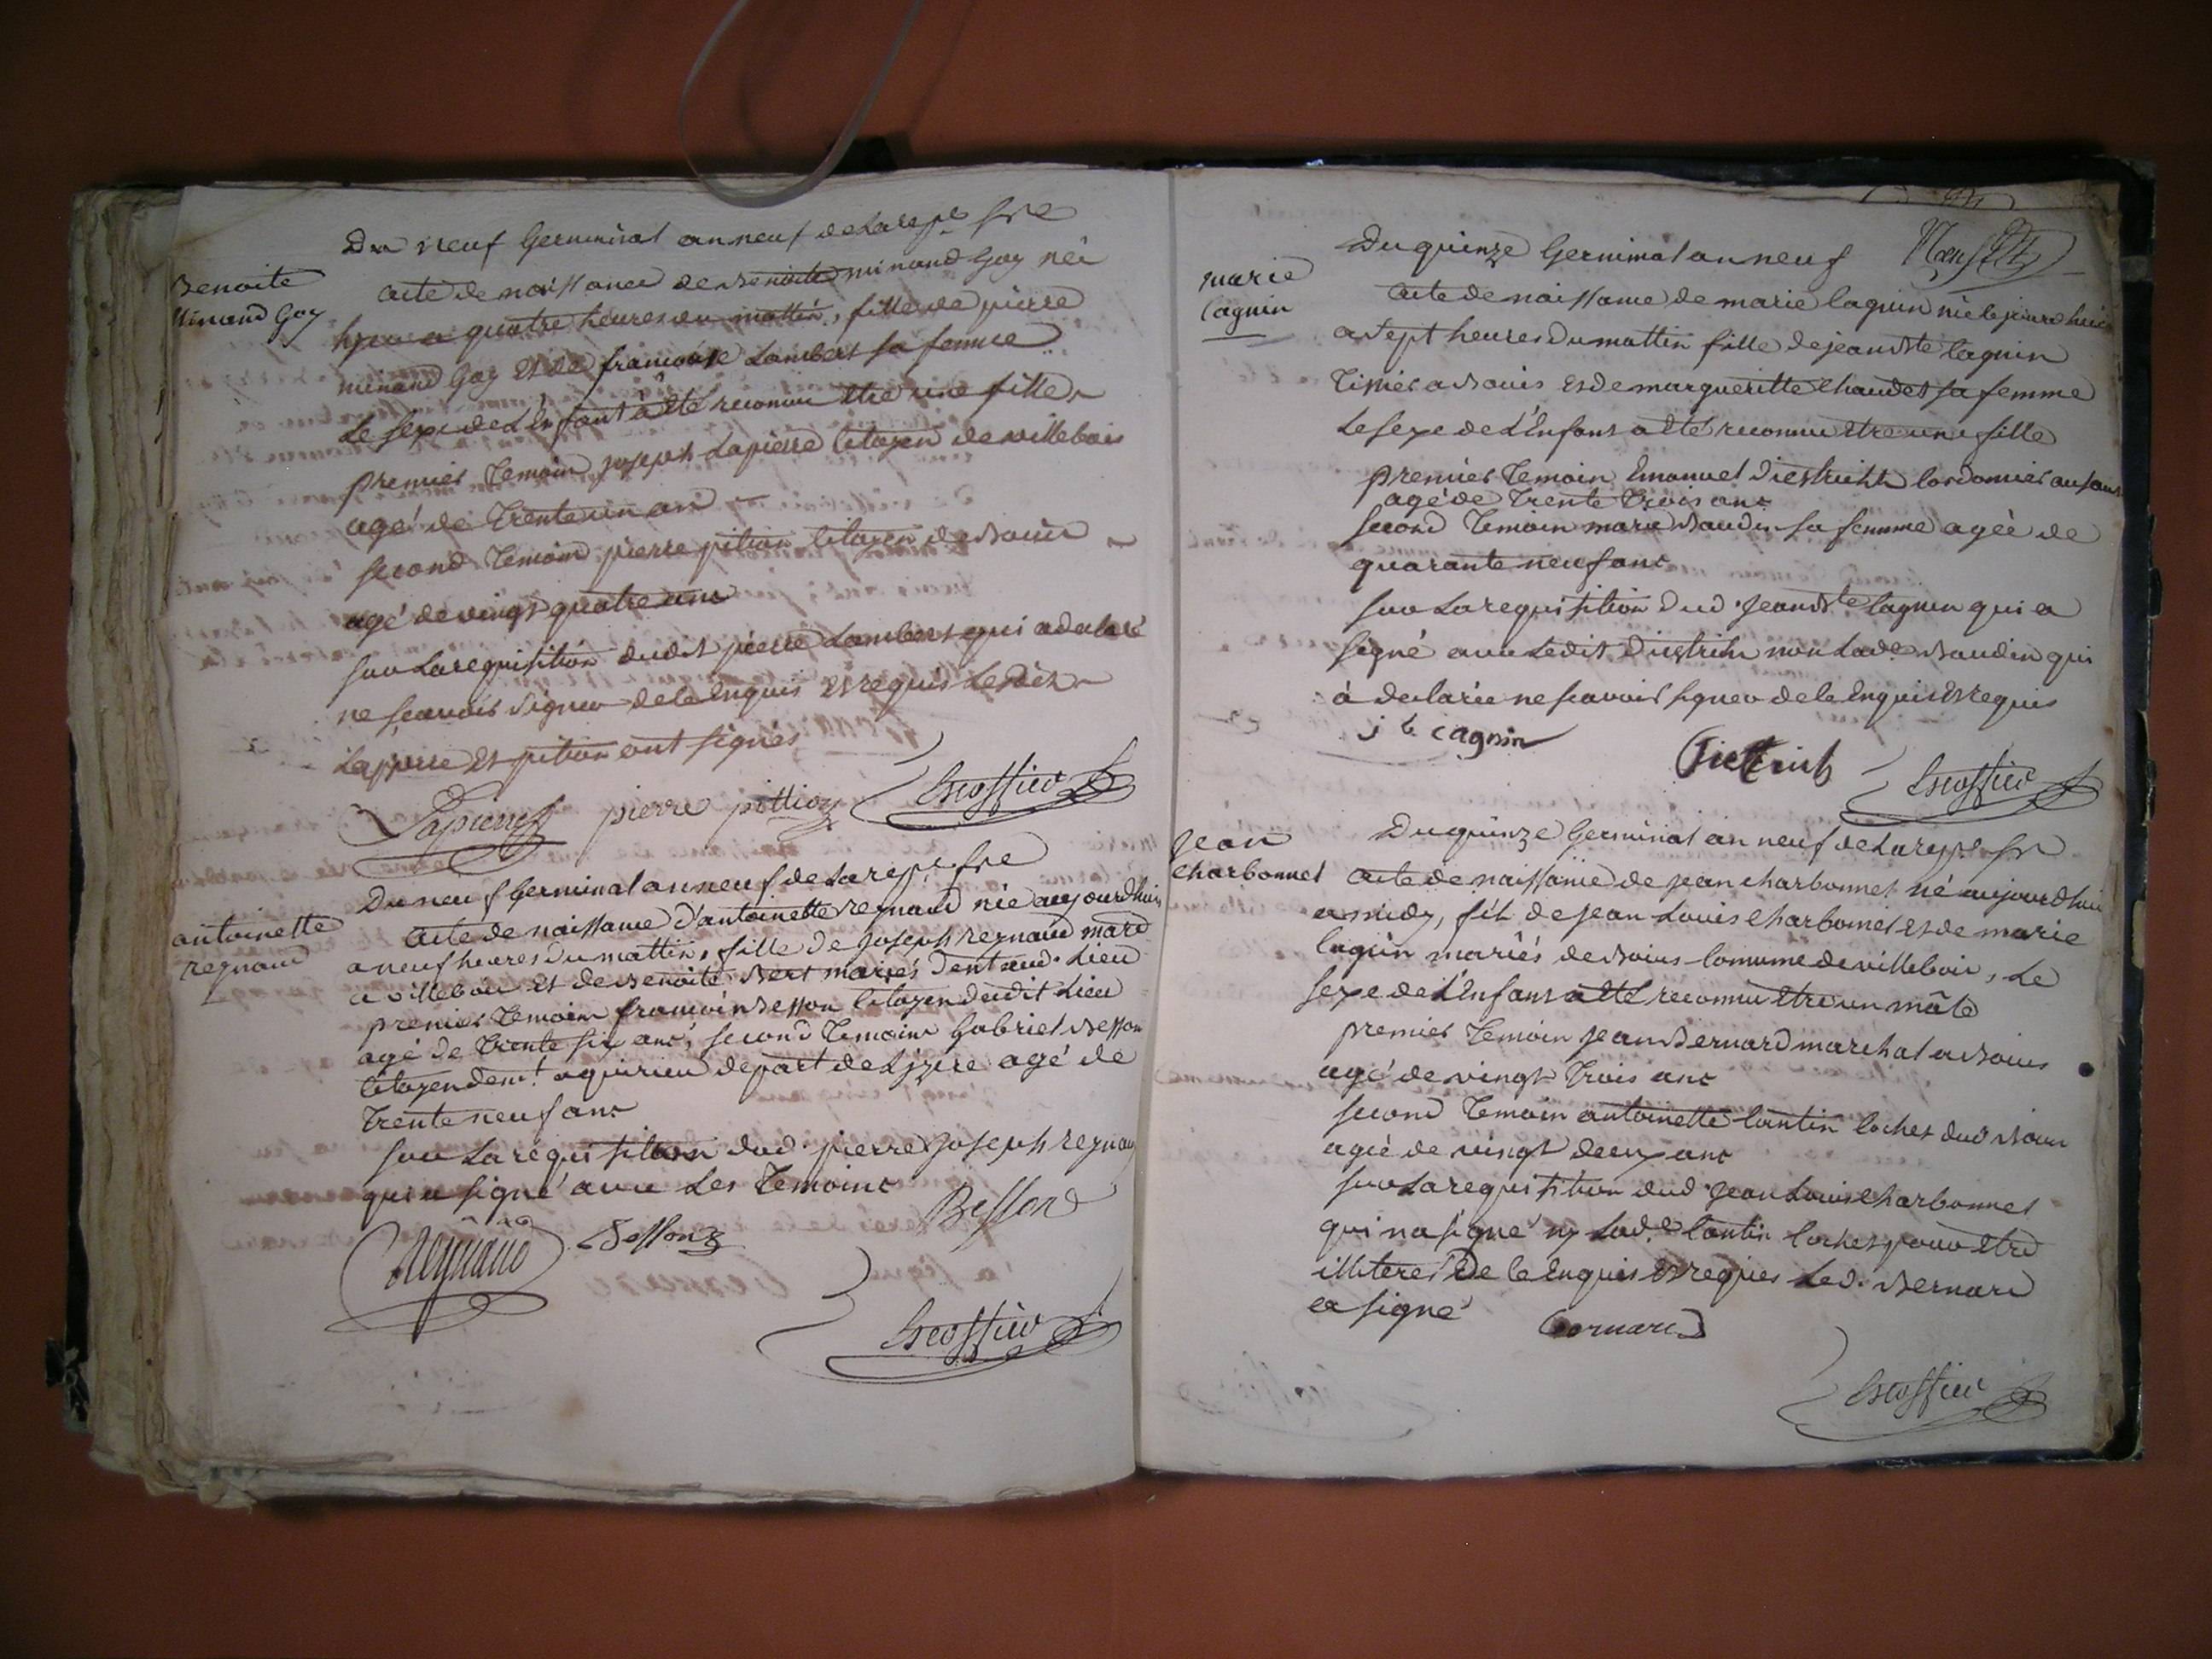 Du neuf Germinal an neuf de la rep.e fre
Benoite
Minand Goy
acte de naissance de Benoite minand Goy née
hyer a quatre heures du mattin, fille de pierre
minand Goy et de francoise Lambert sa femme
Le sexe de L'Enfant à eté reconnu etre une fille
premier temoin joseph Lapierre Citoyen de villebois
agé de trente un an
second temoin pierre pition Citoyen de Bouis
agé de vingt quatre ans
sur La requisition dudit pierre Lambert qui a declaré
ne scavoir signer de ce Enquis et requis Lesdits
Lapierre et pition ont signés
Lapierre pierre pittion Escoffier
Du neuf Germinal an neuf de La rep.e fre
antoinette
regnaud
acte de naissance d'antoinette regnaud née aujourdhuy
a neuf heures du mattin, fille de joseph regnaud mard
a villebois et de Benoite Bert mariés dentraud. Lieu
premier temoin francois Besson Citoyen dudit Lieu
agé de trente six ans, second temoin Gabriel Besson
Citoyen dem.t a quirieu depart de Lizere agé de
trente neuf ans
sur La requisition dud. pierre joseph regnaud
qui a signé avec Les temoins
Regnaud Besson Besson
Escoffier
Du quinze Germinal an neuf
marie
Cagnin
acte de naissance de marie Cagnin née le jourdhuis
a sept heures du mattin fille de jean Bte Cagnin
Tissier a Bouis et de margueritte Chaudet sa femme
Le sexe de L'Enfant a eté reconnu etre une fille
premier temoin Emanuel Diestricht Cordonnier au sault
agé de trente trois ans
second temoin marie Baudin sa femme agée de
quarante neuf ans
sur La requisition dud. jean Bte Cagnin qui a
signé avec Ledit Diestricht non Lad.e Baudin qui
à declarée ne scavoir signer de ce Enquise et requis
j b cagnin Escoffier
Du quinze Germinal an neuf de La rep.e fre
jean
Charbonnet
acte de naissance de jean Charbonnet né aujourdhui
a midy, fils de jean Louis Charbonnet et de marie
Cagnin mariés de Bouis Commune de villebois, Le
sexe de L'Enfant a eté reconnu etre un mâle
premier temoin jean Bernard marchal a Bouis
agé de vingt trois ans
second temoin antoinette Contin Cochet dud Bouis
agée de vingt deux ans
sur La requisition dud. jean Louis Charbonnet
qui na signé ny Lad.e Contin Cochet pour etre
illiteres de ce Enquis et requis Led. Bernard
a signé
Bernard
Escoffier